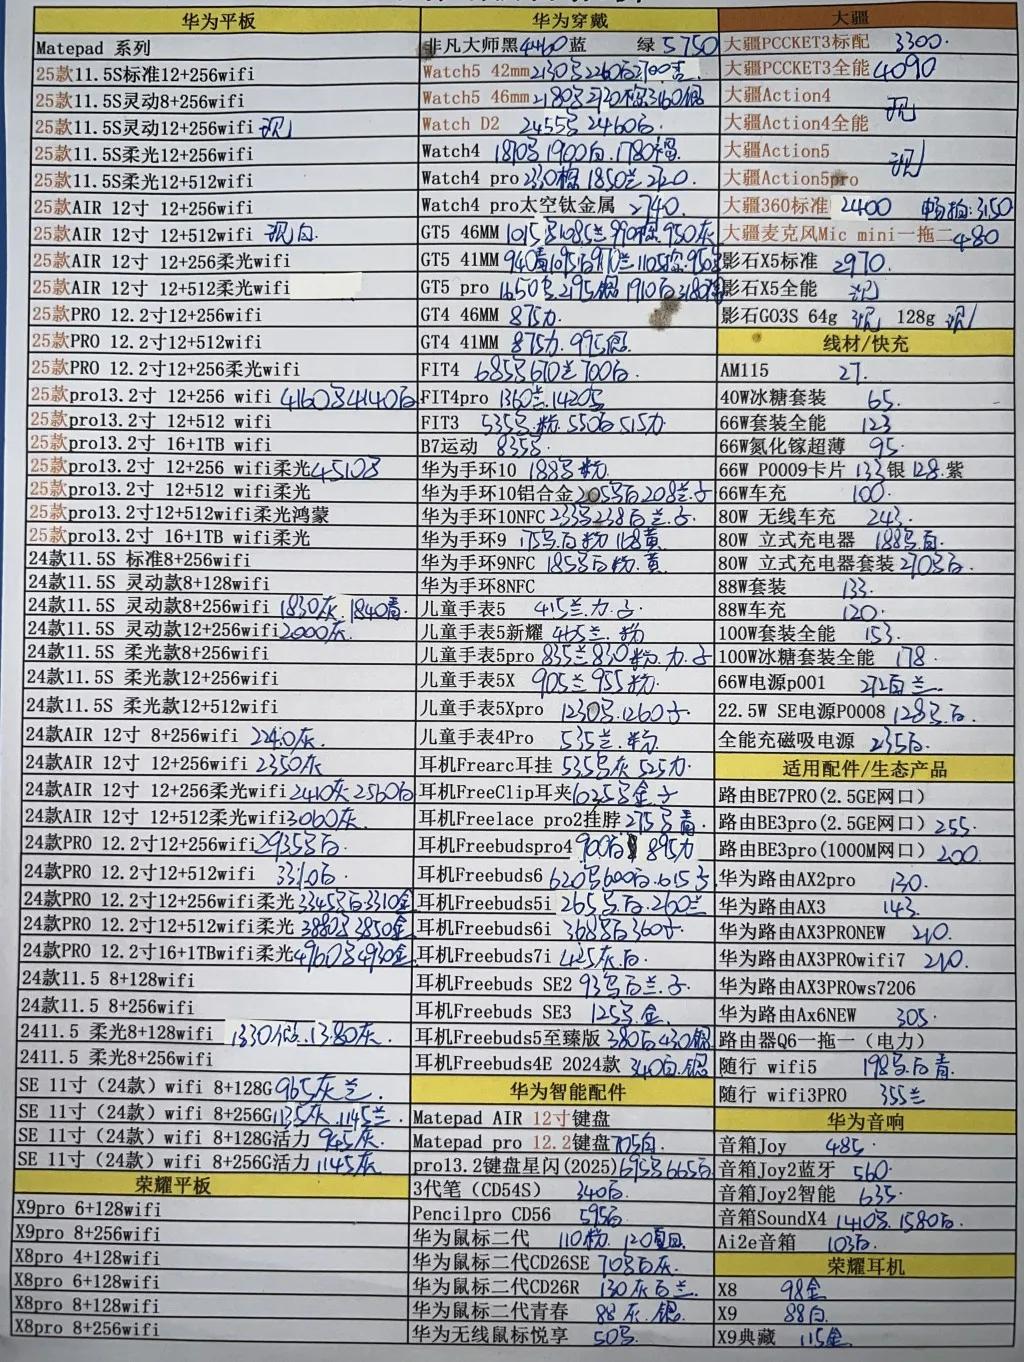 华为平板
Matepad 系列
25款11.5S标准12+256wifi
25款11.5S灵动8+256wifi
25款11.5S灵动12+256wifi 现
25款11.5S柔光12+256wifi
25款11.5S柔光12+512wifi
25款AIR 12寸 12+256wifi
25款AIR 12寸 12+512wifi 现白
25款AIR 12寸 12+256柔光wifi
25款AIR 12寸 12+512柔光wifi
25款PRO 12.2寸12+256wifi
25款PRO 12.2寸12+512wifi
25款PRO 12.2寸12+256柔光wifi
25款pro13.2寸 12+256 wifi 4160 4140白
25款pro13.2寸 12+512 wifi
25款pro13.2寸 16+1TB wifi
25款pro13.2寸 12+256 wifi柔光 4510
25款pro13.2寸 12+512 wifi柔光
25款pro13.2寸 12+512wifi柔光鸿蒙
25款pro13.2寸 16+1TB wifi 柔光
24款11.5S 标准8+256wifi
24款11.5S 灵动款8+128wifi
24款11.5S 灵动款8+256wifi 1830灰 1840青
24款11.5S 灵动款12+256wifi 2000灰
24款11.5S 柔光款8+256wifi
24款11.5S 柔光款12+256wifi
24款11.5S 柔光款12+512wifi
24款AIR 12寸 8+256wifi 2240灰
24款AIR 12寸 12+256wifi 2350灰
24款AIR 12寸 12+256柔光wifi 2410灰 2560白
24款AIR 12寸 12+512柔光wifi 3060灰
24款PRO 12.2寸12+256wifi 2935 白
24款PRO 12.2寸12+512wifi 3310白
24款PRO 12.2寸12+256wifi柔光 3345 白 3310金
24款PRO 12.2寸12+512wifi柔光 3880 3850金
24款PRO 12.2寸16+1TBwifi柔光 4960 4930金
24款11.5 8+128wifi
24款11.5 8+256wifi
2411.5 柔光8+128wifi 1330 1380灰
2411.5 柔光8+256wifi
SE 11寸（24款）wifi 8+128G 965灰兰
SE 11寸（24款）wifi 8+256G 1135灰 1145兰
SE 11寸（24款）wifi 8+128G活力 945灰
SE 11寸（24款）wifi 8+256G活力 1145灰
荣耀平板
X9pro 6+128wifi
X9pro 8+256wifi
X8pro 4+128wifi
X8pro 6+128wifi
X8pro 8+128wifi
X8pro 8+256wifi
华为穿戴
非凡大师黑4460蓝 绿5750
Watch5 42mm 2130 2260白 2700
Watch5 46mm 2180 3160银
Watch D2 2455 2460白
Watch4 1810 1900白 1780
Watch4 pro 2330 1850兰
Watch4 pro太空钛金属 2740
GT5 46MM 1015 1085兰 990 950灰
GT5 41MM 940 1095白 970兰 1105
GT5 pro 1650 2195 1910白
GT4 46MM 875力
GT4 41MM 875力 995
FIT4 685 670兰 700白
FIT4pro 1360兰 1420
FIT3 535 粉 550白 515力
B7运动 835
华为手环10 188 粉
华为手环10铝合金 205 白 208兰
华为手环10NFC 233 238白兰
华为手环9 175 白粉 168黄
华为手环9NFC 185 白粉 黄
华为手环8NFC
儿童手表5 415兰 力
儿童手表5新耀 465兰 粉
儿童手表5pro 835兰 830粉 力
儿童手表5X 905兰 955粉
儿童手表5Xpro 1230 1260
儿童手表4Pro 535兰 粉
耳机Frearc耳挂 535 灰 525力
耳机FreeClip耳夹 金
耳机Freelace pro2挂脖 275 青
耳机Freebudspro4 900白 895力
耳机Freebuds6 620 600白 615
耳机Freebuds5i 265 白 260兰
耳机Freebuds6i 368 白 360
耳机Freebuds7i 425灰 白
耳机Freebuds SE2 93 白兰
耳机Freebuds SE3 125 金
耳机Freebuds5至臻版 380白 430银
耳机Freebuds4E 2024款 340白 银
华为智能配件
Matepad AIR 12寸键盘
Matepad pro 12.2键盘 705白
pro13.2键盘星闪(2025) 695 665白
3代笔（CD54S） 340白
Pencilpro CD56 595白
华为鼠标二代 110粉 120
华为鼠标二代CD26SE 70 白灰
华为鼠标二代CD26R 130灰白兰
华为鼠标二代青春 88灰 银
华为无线鼠标悦享 50
大疆
大疆PCCKET3标配 3300
大疆PCCKET3全能 4090
大疆Action4 现
大疆Action4全能
大疆Action5 现
大疆Action5pro
大疆360标准 2400 畅拍:3150
大疆麦克风Mic mini一拖二 480
影石X5标准 2970
影石X5全能 现
影石GO3S 64g 现 128g 现
线材/快充
AM115 27
40W冰糖套装 65
66W套装全能 123
66W氮化镓超薄 95
66W P0009卡片 133银 128紫
66W车充 100
80W 无线车充 243
80W 立式充电器 188 白
80W 立式充电器套装 270 白
88W套装 133
88W车充 120
100W套装全能 153
100W冰糖套装全能 178
66W电源p001 272白兰
22.5W SE电源P0008 128 白
全能充磁吸电源 235白
适用配件/生态产品
路由BE7PRO(2.5GE网口)
路由BE3pro(2.5GE网口) 255
路由BE3pro(1000M网口) 200
华为路由AX2pro 130
华为路由AX3 143
华为路由AX3PRONEW 210
华为路由AX3PROwifi7 210
华为路由AX3PROws7206
华为路由Ax6NEW 305
路由器Q6一拖一（电力）
随行 wifi5 198 白青
随行 wifi3PRO 355兰
华为音响
音箱Joy 485
音箱Joy2蓝牙 560
音箱Joy2智能 635
音箱SoundX4 1410 1580白
Ai2e音箱 103白
荣耀耳机
X8 98金
X9 88白
X9典藏 115金